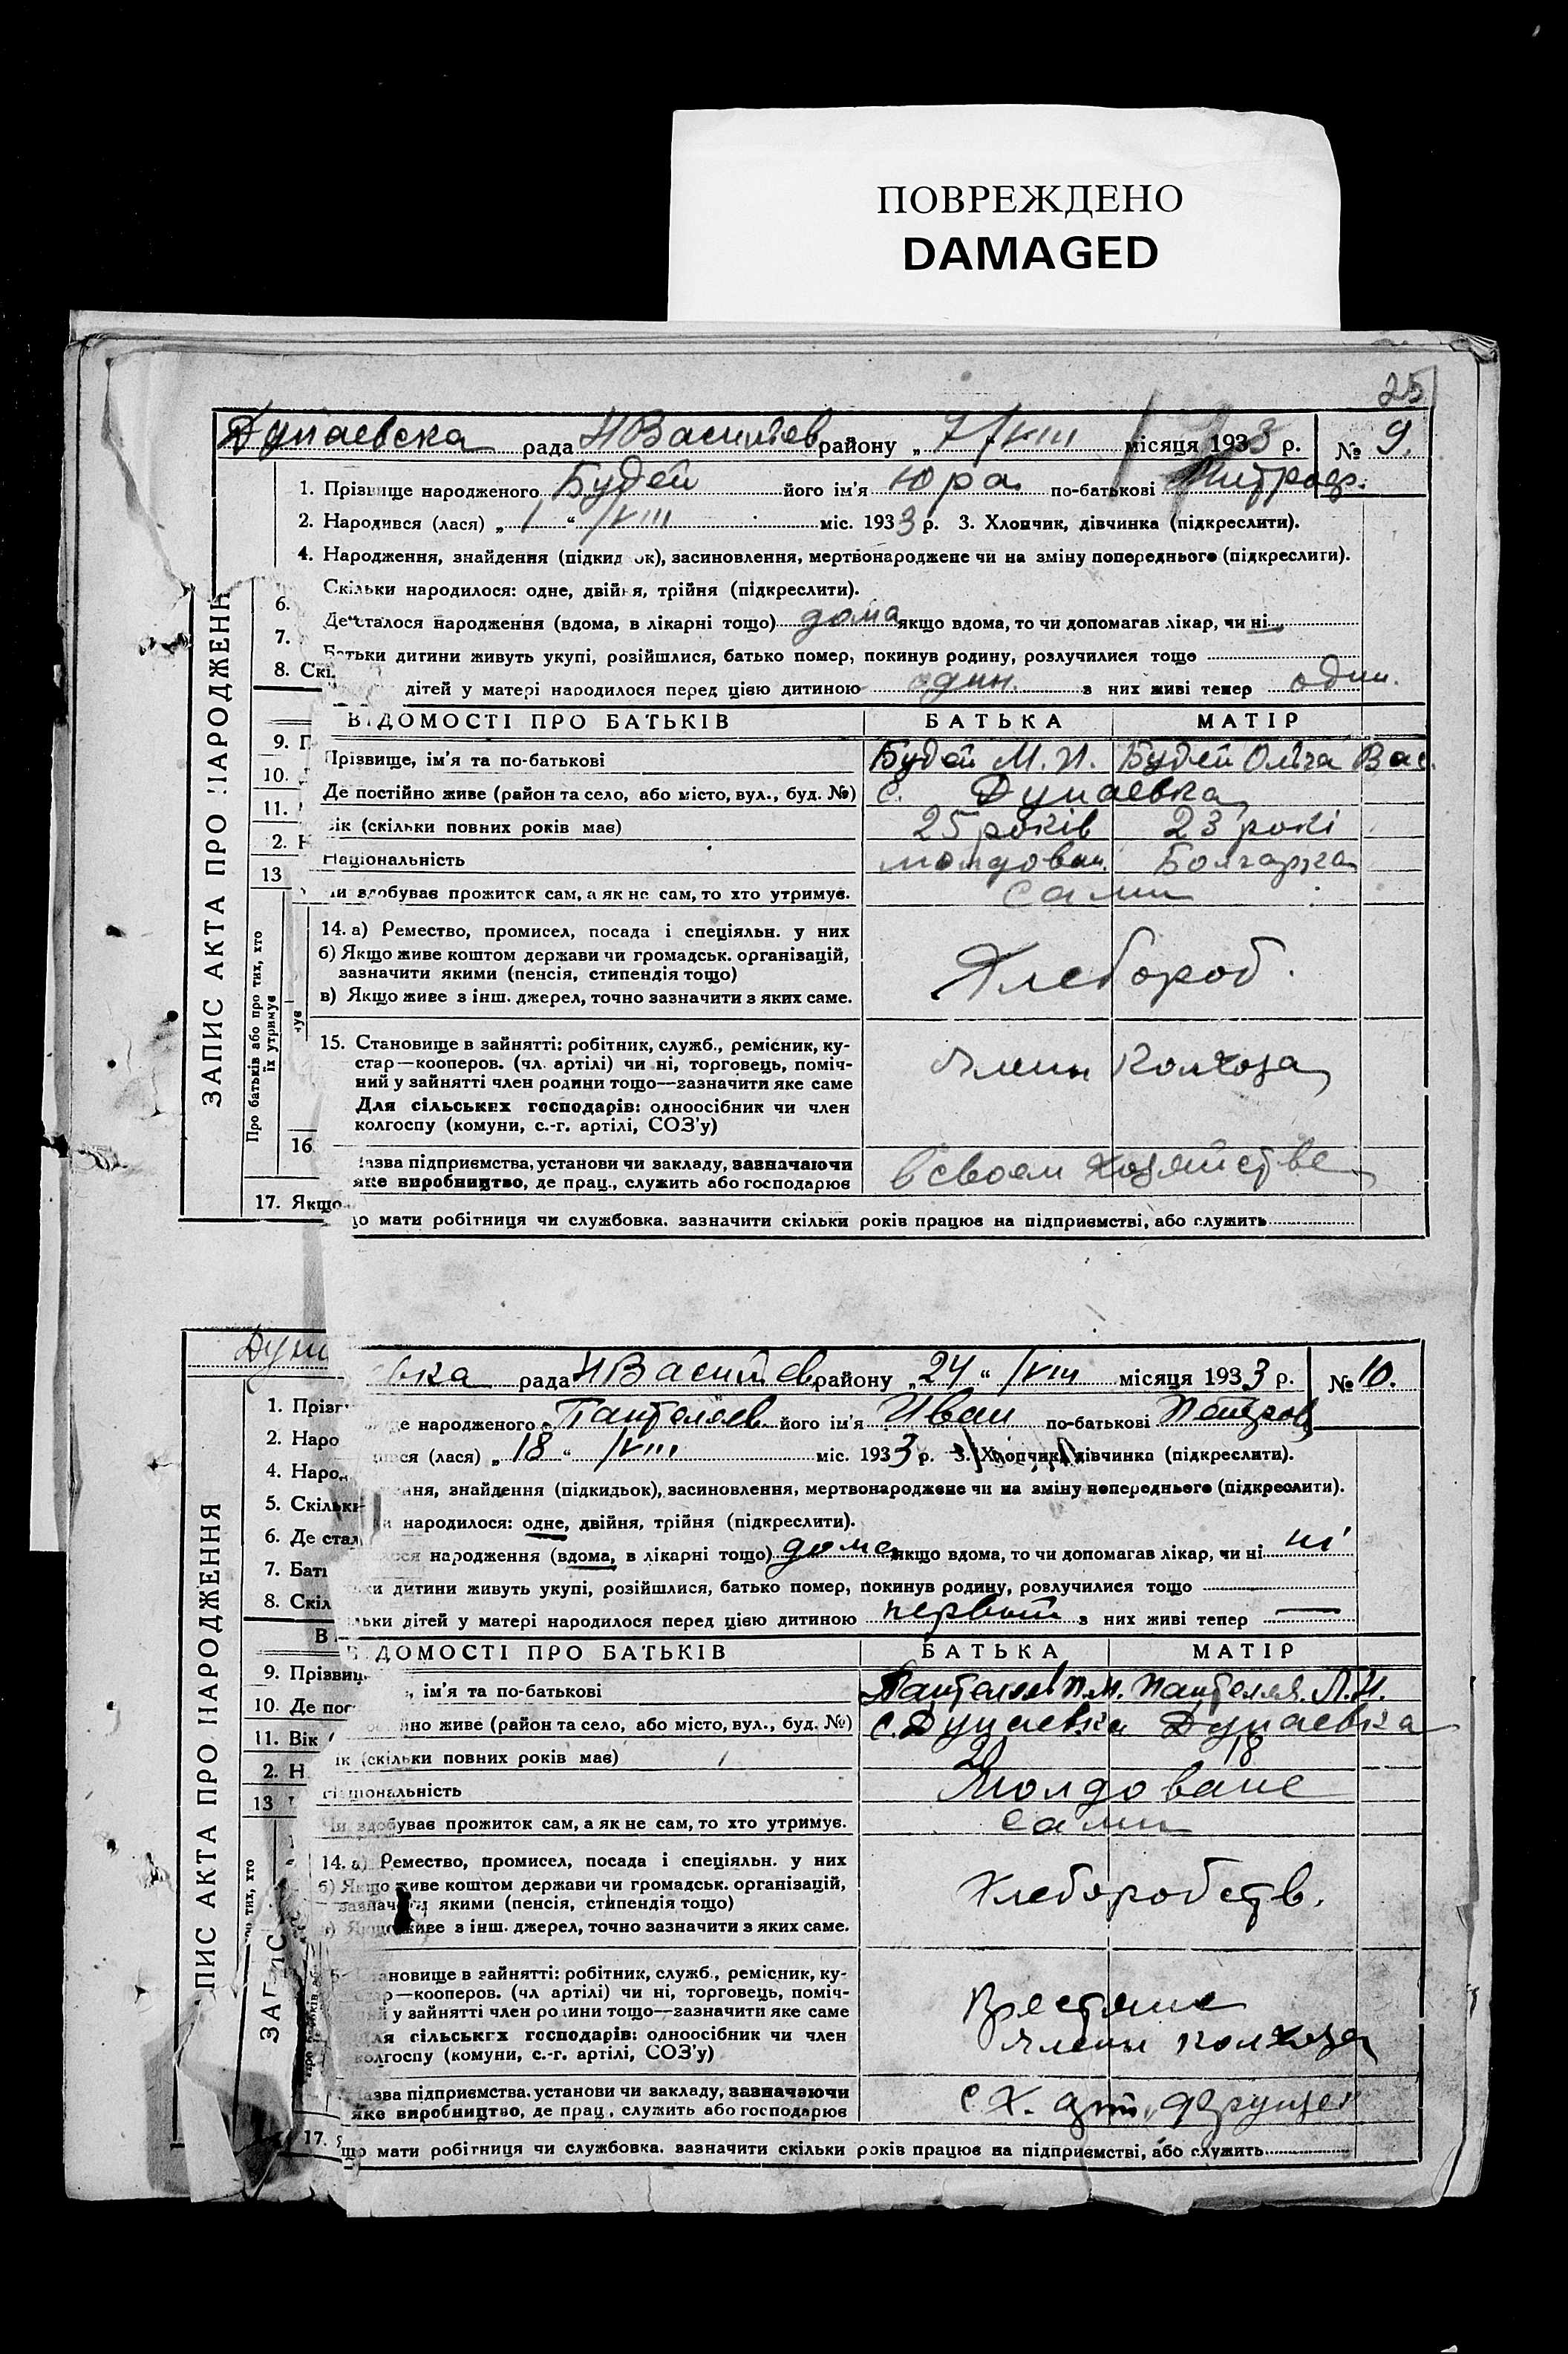 ПОВРЕЖДЕНО
DAMAGED
25
Дунаевска рада НВасилiев району „ 7 /VIII місяця 1933 р. № 9.
1. Прізвище народженого Будей його ім'я Юра по-батькові Митроф.
2. Народився (лася) „ 1 “ /VIII міс. 1933 р. 3. Хлопчик, дівчинка (підкреслити).
4. Народження, знайдення (підкид ок), засиновлення, мертвонароджене чи на зміну попереднього (підкреслити).
Скільки народилося: одне, двійня, трійня (підкреслити).
6. Де сталося народження (вдома, в лікарні тощо) дома якщо вдома, то чи допомагав лікар, чи ні
7. Батьки дитини живуть укупі, розійшлися, батько помер, покинув родину, розлучилися тощо
8. Скі дітей у матері народилося перед цією дитиною один. з них живі тепер один.
ВІДОМОСТІ ПРО БАТЬКІВ БАТЬКА МАТІР
9. П Прізвище, ім'я та по-батькові Будей М. И. Будей Ольга Вас.
10. Де постійно живе (район та село, або місто, вул., буд. №) с. Дунаевка
11. Вік (скільки повних років має) 25 років 23 рокі
2. Н Національність молдован. Болгарка
13 Чи здобуває прожиток сам, а як не сам, то хто утримує. сами
14. а) Ремество, промисел, посада і спеціяльн. у них
б) Якщо живе коштом держави чи громадськ. організацій,
зазначити якими (пенсія, стипендія тощо)
в) Якщо живе з інш. джерел, точно зазначити з яких саме.
Хлебороб.
15. Становище в зайнятті: робітник, служб., ремісник, ку-
стар—кооперов. (чл. артілі) чи ні, торговець, поміч-
ний у зайнятті член родини тощо—зазначити яке саме
Для сільських господарів: одноосібник чи член
колгоспу (комуни, с.-г. артілі, СОЗ'у)
Члены Колхоза
16 Назва підприємства, установи чи закладу, зазначаючи
яке виробництво, де прац., служить або господарює
в своем хозяйстве
17. Якщо мати робітниця чи службовка, зазначити скільки років працює на підприємстві, або служить
ЗАПИС АКТА ПРО НАРОДЖЕНН
Про батьків або про тих, хто
їх утримує
Дунаевка рада НВасилiев району „ 24 “ /VIII місяця 1933 р. № 10.
1. Прізвище народженого Пантелеев його ім'я Иван по-батькові Петров
2. Народився (лася) „ 18 “ /VIII міс. 1933 р. 3. Хлопчик, дівчинка (підкреслити).
4. Народження, знайдення (підкидьок), засиновлення, мертвонароджене чи на зміну попереднього (підкреслити).
5. Скільки народилося: одне, двійня, трійня (підкреслити).
6. Де сталося народження (вдома, в лікарні тощо) дома якщо вдома, то чи допомагав лікар, чи ні ні
7. Батьки дитини живуть укупі, розійшлися, батько помер, покинув родину, розлучилися тощо
8. Скільки дітей у матері народилося перед цією дитиною первый з них живі тепер —
ВІДОМОСТІ ПРО БАТЬКІВ БАТЬКА МАТІР
9. Прізвище, ім'я та по-батькові Пантелеев П.М. Пантелея. Л.И.
10. Де постійно живе (район та село, або місто, вул., буд. №) с. Дунаевка Дунаевка
11. Вік (скільки повних років має) 20 18
2. Н Національність Молдоване
13 Чи здобуває прожиток сам, а як не сам, то хто утримує. сами
14. а) Ремество, промисел, посада і спеціяльн. у них
б) Якщо живе коштом держави чи громадськ. організацій,
зазначити якими (пенсія, стипендія тощо)
в) Якщо живе з інш. джерел, точно зазначити з яких саме.
Хлеборобств.
Становище в зайнятті: робітник, служб., ремісник, ку-
стар—кооперов. (чл артілі) чи ні, торговець, поміч-
ний у зайнятті член родини тощо—зазначити яке саме
Для сільських господарів: одноосібник чи член
колгоспу (комуни, с.-г. артілі, СОЗ'у)
Крестяне
члены колхоза
Назва підприємства, установи чи закладу, зазначаючи
яке виробництво, де прац., служить або господарює
с. Х. арт. „Фрунзе“
17. Якщо мати робітниця чи службовка, зазначити скільки років працює на підприємстві, або служить
ПИС АКТА ПРО НАРОДЖЕННЯ